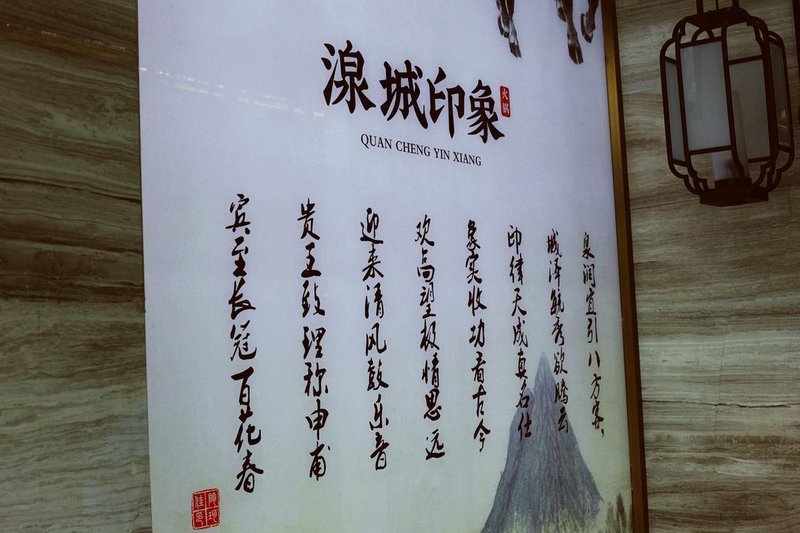 湶城印象
火锅
QUAN CHENG YIN XIANG
泉润宣引八方客,
城泽毓秀欲腾云
印律天成真名仕
象实收功看古今
欢高望极情思远
迎来清风鼓乐音
贵王致理称申甫
宾至长冠百花春